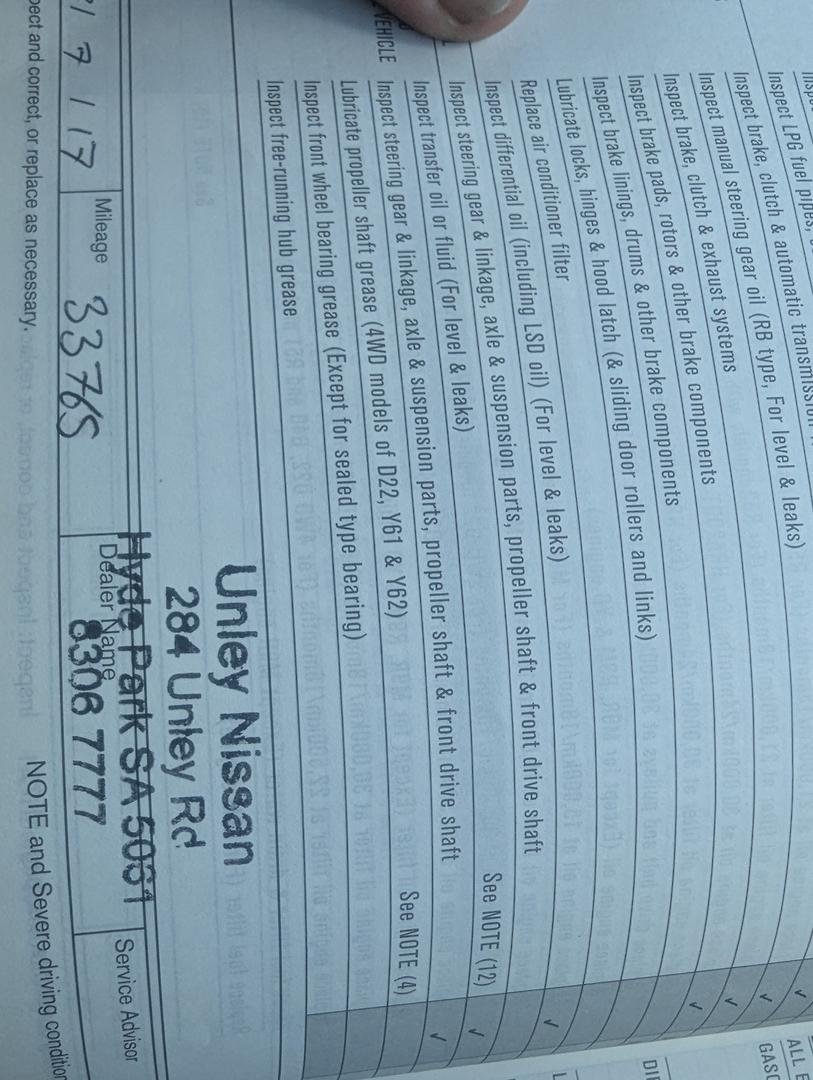 Inspect LPG fuel pipes,
Inspect brake, clutch & automatic transmission
Inspect manual steering gear oil (RB type, For level & leaks)
Inspect brake, clutch & exhaust systems
Inspect brake pads, rotors & other brake components
Inspect brake linings, drums & other brake components
Lubricate locks, hinges & hood latch (& sliding door rollers and links)
Replace air conditioner filter
Inspect differential oil (including LSD oil) (For level & leaks)
Inspect steering gear & linkage, axle & suspension parts, propeller shaft & front drive shaft See NOTE (12)
Inspect transfer oil or fluid (For level & leaks)
VEHICLE Inspect steering gear & linkage, axle & suspension parts, propeller shaft & front drive shaft See NOTE (4)
Lubricate propeller shaft grease (4WD models of D22, Y61 & Y62)
Inspect front wheel bearing grease (Except for sealed type bearing)
Inspect free-running hub grease
Unley Nissan
284 Unley Rd
Hyde Park SA 5061
8306 7777
7 / 17 Mileage 33765 Dealer Name Service Advisor
and correct, or replace as necessary. NOTE and Severe driving condition
ALL
GAS